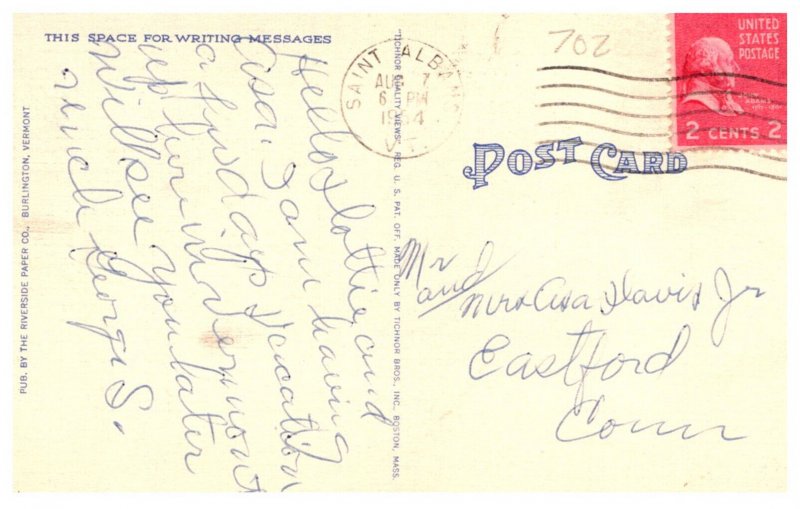 THIS SPACE FOR WRITING MESSAGES
Hello Lottie and
Asa. I am having
a few days vacation
up here in Vermont
Will see you later
George S.
PUB. BY THE RIVERSIDE PAPER CO., BURLINGTON, VERMONT
"TICHNOR QUALITY VIEWS" REG. U. S. PAT. OFF. MADE ONLY BY TICHNOR BROS., INC. BOSTON, MASS.
SAINT ALBANS
AUG 7
6 PM
VT.
702
UNITED
STATES
POSTAGE
2 CENTS 2
POST CARD
Mr and
Mrs Asa Davis Jr
Eastford
Conn